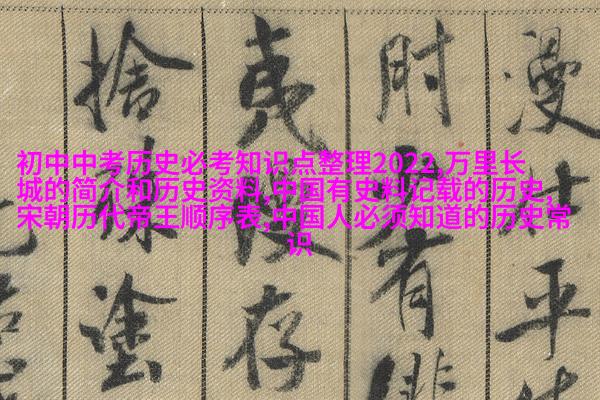 初中中考历史必考知识点整理2022,万里长
城的简介和历史资料,中国有史料记载的历史,
宋朝历代帝王顺序表,中国人必须知道的历史常
识
漫仕平
肘少有俳
夷漫存
捨殊塗